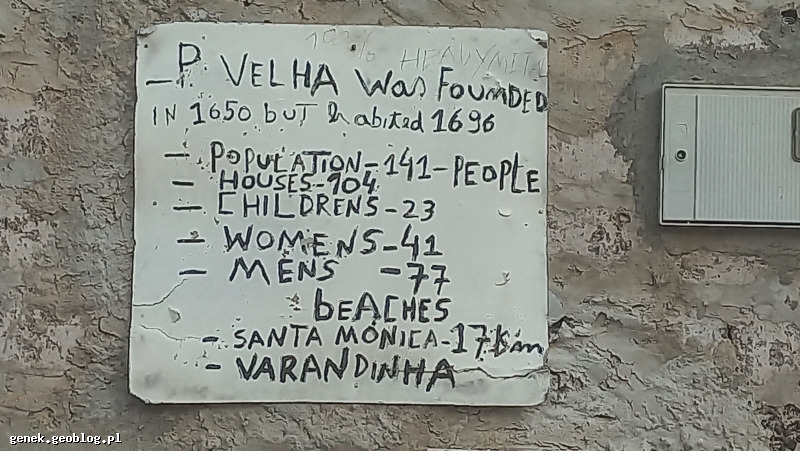 100% HEAVYMETAL
- P. VELHA WAS FOUMDED
IN 1650 bUT habited 1696
- POPULATION - 141 - PEOPLE
- HOUSES - 104
- CHILDRENS - 23
- WOMENS - 41
- MENS - 77
bEACHES
- SANTA MÓNICA - 17 km
- VARANDINHA
genek.geoblog.pl